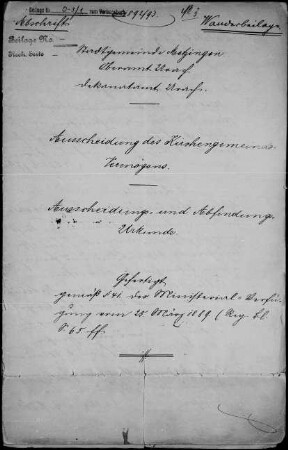 Abschrift.
Beilage No.
Wanderbeilage
Stadtgemeinde Metzingen
Oberamt Urach.
Dekanatamt Urach.
Ausscheidung des Kirchengemeinde-
Vermögens.
Ausscheidungs- und Abfindungs-
Urkunde.
Gefertigt
gemäß § 41 der Ministerial-Verfü-
gung vom 25. März 1889 (Reg. Bl.
S. 65 ff.